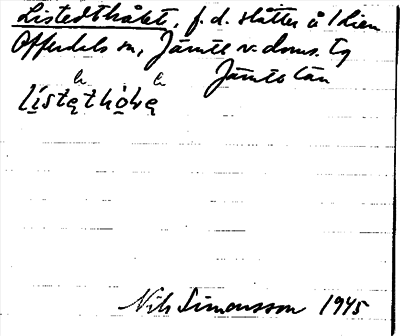 Listedthåkte, f.d. slåtter å 1 Lien
Offerdals sn, Jämtl v. doms. tg
Jämts län
Nils Simonsson 1945